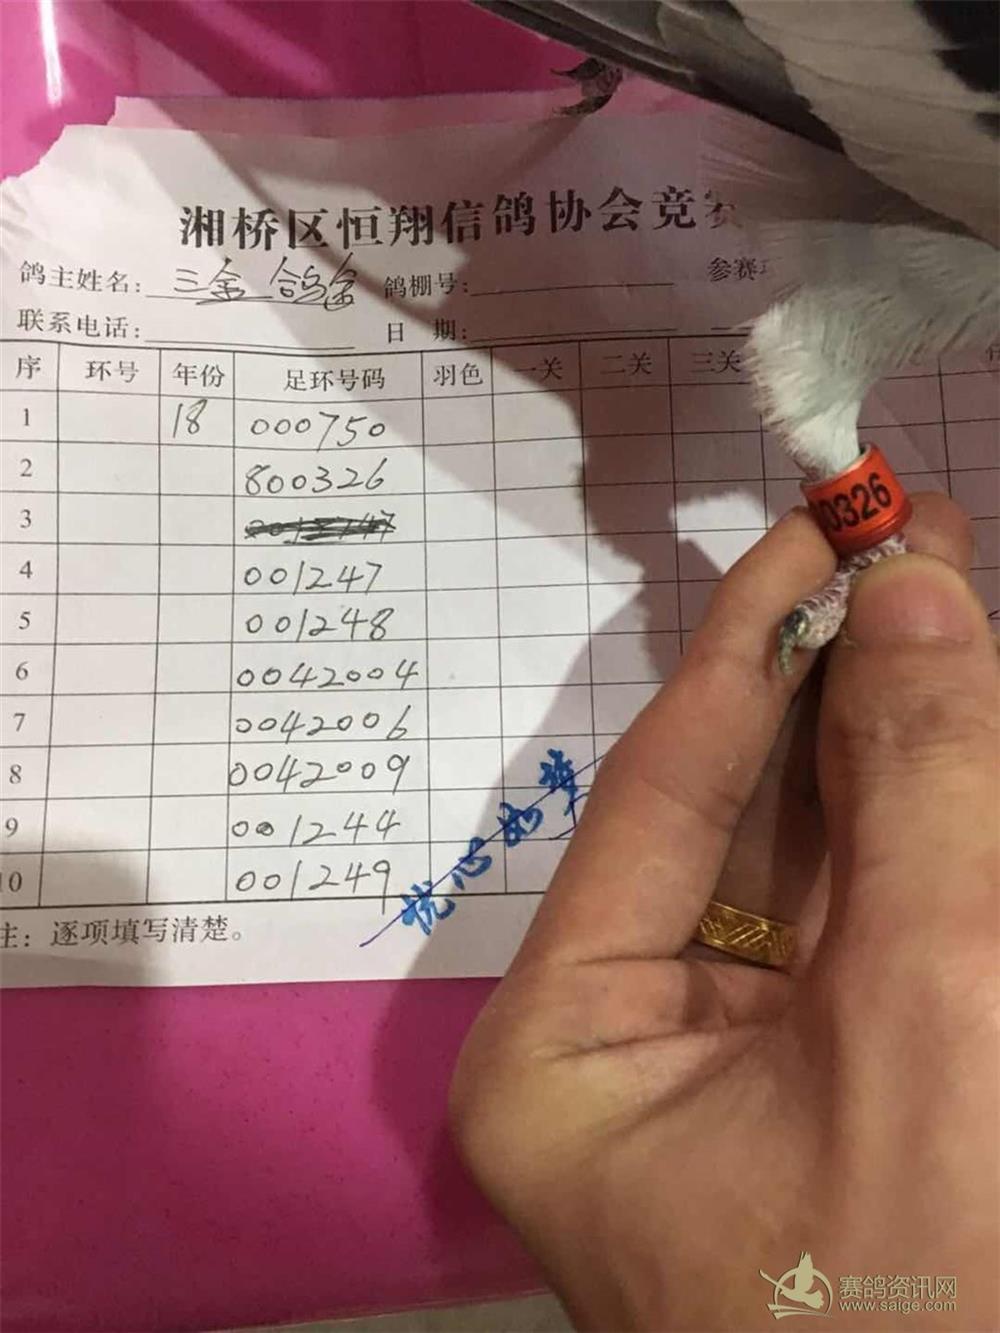 湘桥区恒翔信鸽协会竞赛
鸽主姓名: 三余 鸽舍 鸽棚号: 参赛
联系电话: 日 期:
序 环号 年份 足环号码 羽色 一关 二关 三关
1 18 000750
2 800326
3
4 001247
5 001248
6 0042004
7 0042006
8 0042009
9 001244
10 001249
注: 逐项填写清楚。
悦心如
0326
赛鸽资讯网
www.saige.com